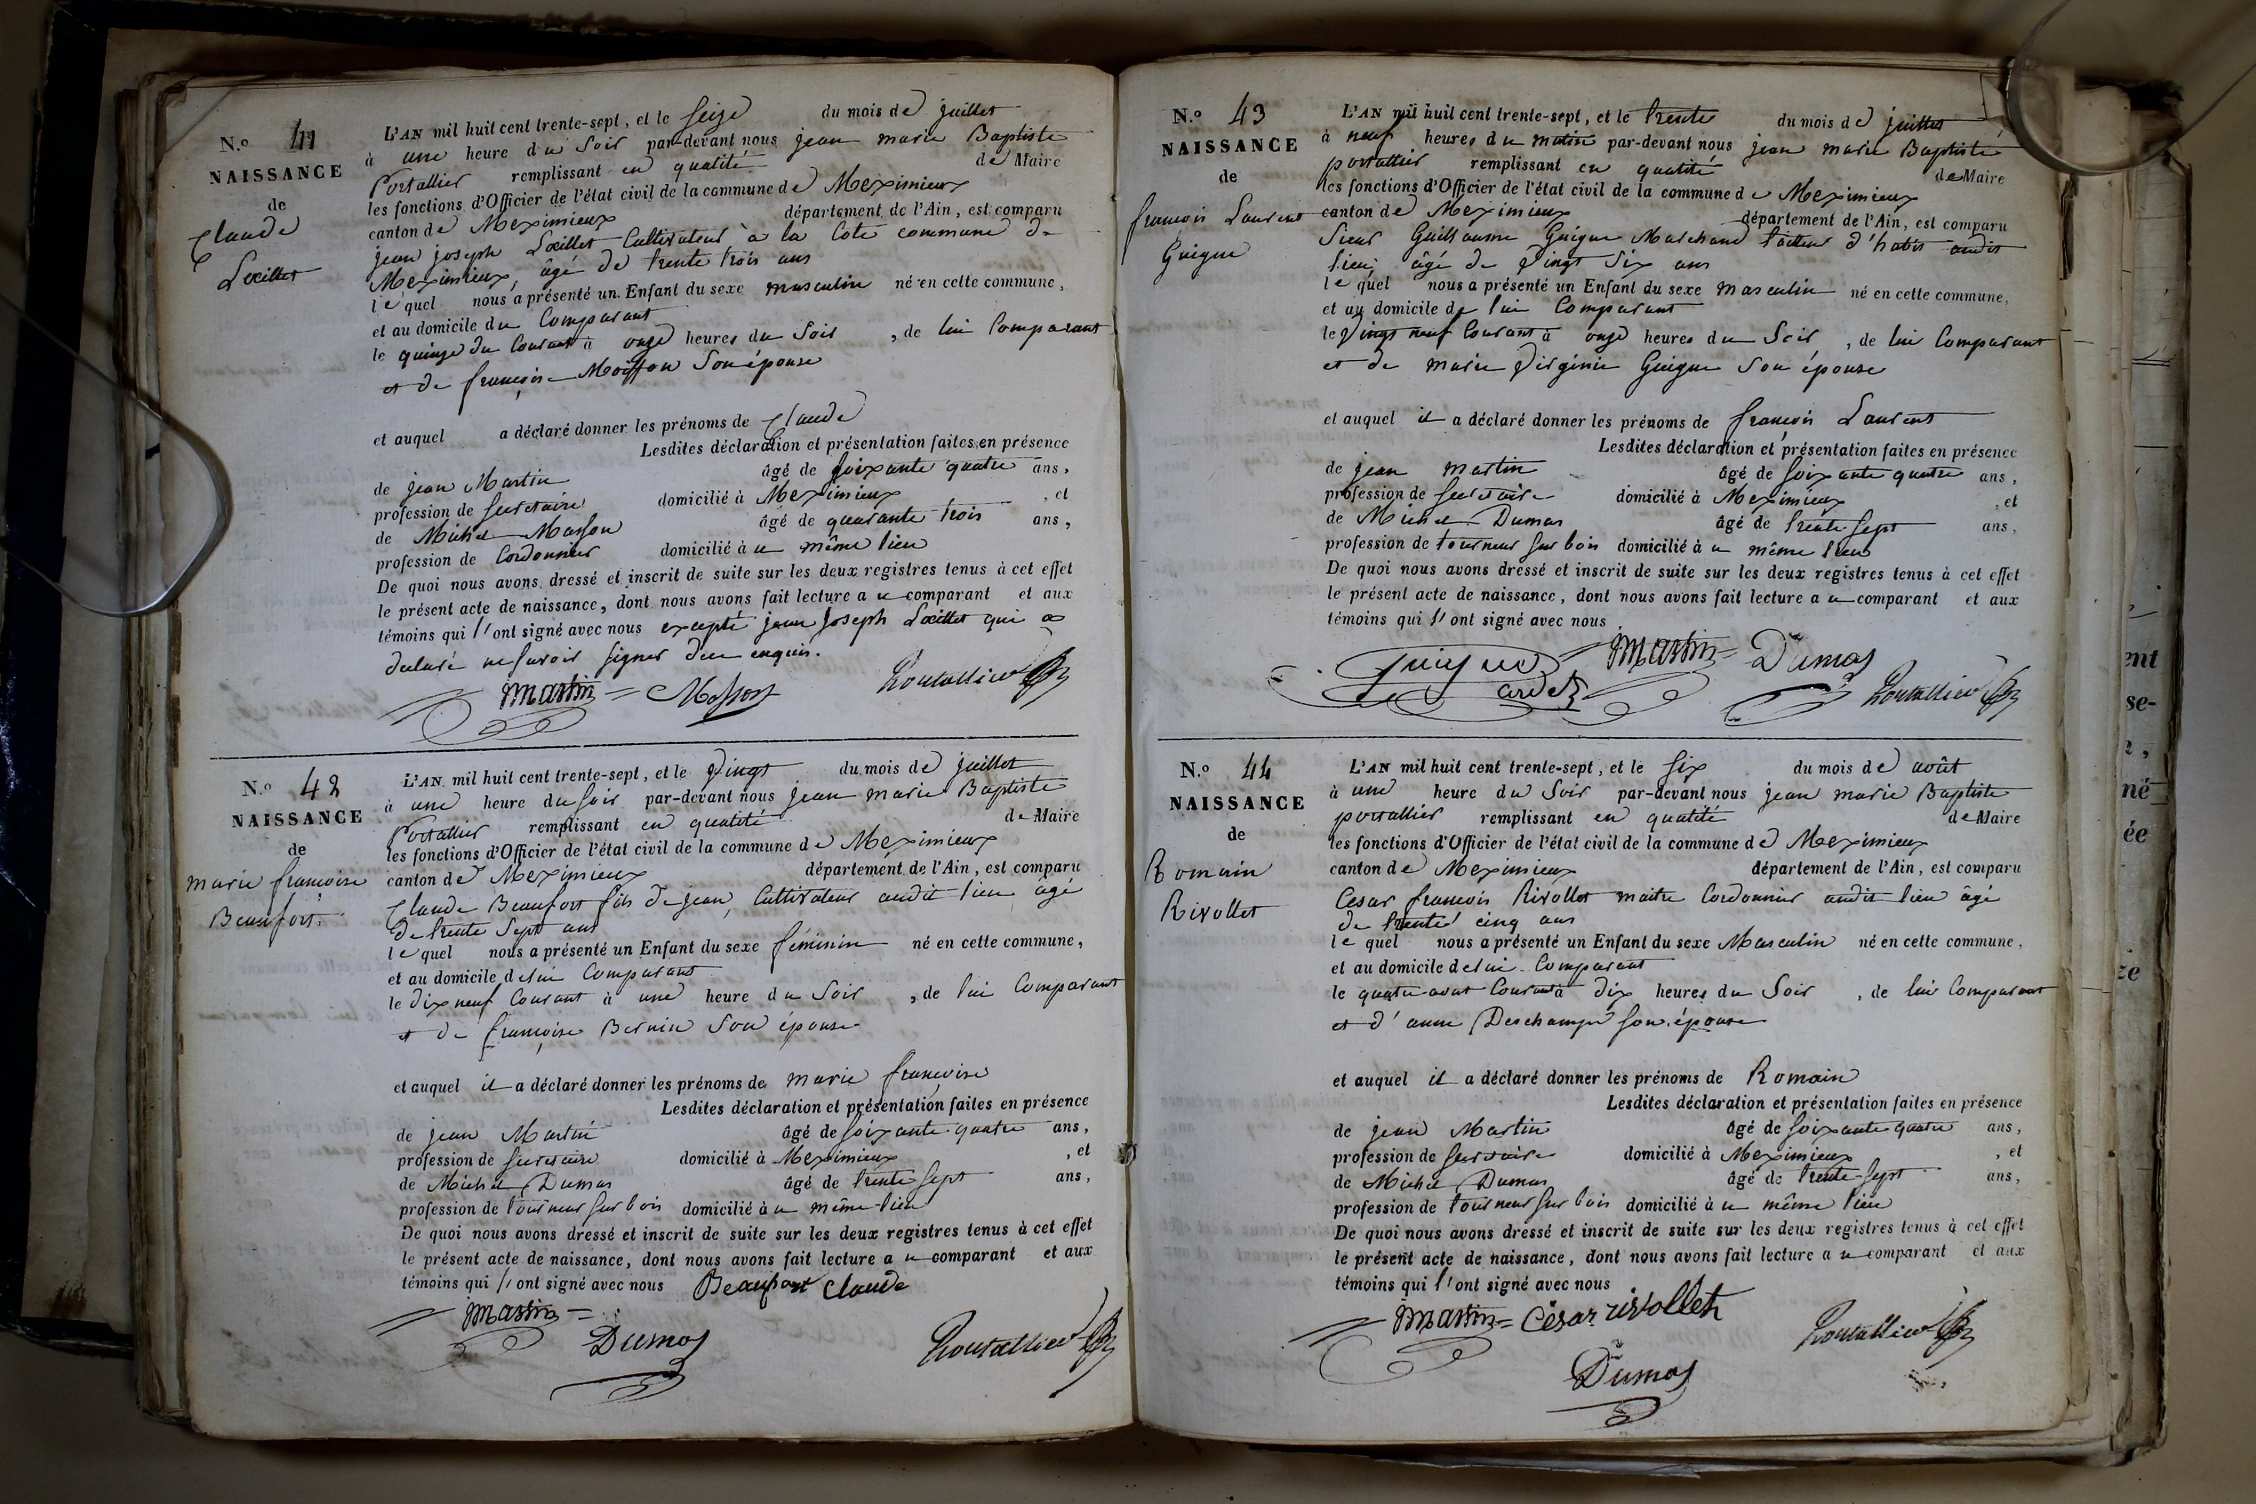 N.º 41
NAISSANCE
de
Claude
Lœillet
L'AN mil huit cent trente-sept, et le seize du mois de juillet
à une heure du soir par-devant nous jean marie Baptiste
Portallier remplissant en qualité de Maire
les fonctions d'Officier de l'état civil de la commune de Meximieux
canton de Meximieux département de l'Ain, est comparu
jean joseph Lœillet Cultivateur à la Cote commune de
Meximieux, âgé de trente trois ans
lequel nous a présenté un Enfant du sexe masculin né en cette commune,
et au domicile du Comparant
le quinze du Courant à onze heures du Soir, de lui Comparant
et de françoise Moiffon Son épouse
et auquel a déclaré donner les prénoms de Claude
Lesdites déclaration et présentation faites en présence
de jean Martin âgé de soixante quatre ans,
profession de secretaire domicilié à Meximieux, et
de Michel Masson âgé de quarante trois ans,
profession de Cordonnier domicilié à u même lieu
De quoi nous avons dressé et inscrit de suite sur les deux registres tenus à cet effet
le présent acte de naissance, dont nous avons fait lecture a u comparant et aux
témoins qui l'ont signé avec nous excepté jean Joseph Lœillet qui a
déclaré ne savoir signer de ce enquis.
Martin Masson Portallier
N.º 42
NAISSANCE
de
marie françoise
Beaufort.
L'AN mil huit cent trente-sept, et le vingt du mois de juillet
à une heure du soir par-devant nous jean marie Baptiste
Portallier remplissant en qualité de Maire
les fonctions d'Officier de l'état civil de la commune de Meximieux
canton de Meximieux département de l'Ain, est comparu
Claude Beaufort fils de jean, Cultivateur audit lieu âgé
de trente Sept ans
lequel nous a présenté un Enfant du sexe féminin né en cette commune,
et au domicile de lui Comparant
le dix neuf Courant à une heure du Soir, de lui Comparant
et de françoise Bernin Son épouse
et auquel il a déclaré donner les prénoms de marie françoise
Lesdites déclaration et présentation faites en présence
de jean Martin âgé de soixante quatre ans,
profession de secretaire domicilié à Meximieux, et
de Michel Dumas âgé de trente sept ans,
profession de tourneur sur bois domicilié à u même lieu
De quoi nous avons dressé et inscrit de suite sur les deux registres tenus à cet effet
le présent acte de naissance, dont nous avons fait lecture a u comparant et aux
témoins qui l'ont signé avec nous Beaufort Claude
Martin
Dumas Portallier
N.º 43
NAISSANCE
de
françois Laurent
Guigue
L'AN mil huit cent trente-sept, et le trente du mois de juillet
à neuf heures du matin par-devant nous jean marie Baptiste
portallier remplissant en qualité de Maire
les fonctions d'Officier de l'état civil de la commune de Meximieux
canton de Meximieux département de l'Ain, est comparu
Sieur Guillaume Guigue Marchand tailleur d'habits audit
lieu, âgé de vingt Six ans
lequel nous a présenté un Enfant du sexe masculin né en cette commune,
et au domicile de lui Comparant
le vingt neuf Courant à onze heures du Soir, de lui Comparant
et de marie virginie Guigue Son épouse
et auquel il a déclaré donner les prénoms de françois Laurent
Lesdites déclaration et présentation faites en présence
de jean martin âgé de soixante quatre ans,
profession de secretaire domicilié à Meximieux, et
de Michel Dumas âgé de trente sept ans,
profession de tourneur sur bois domicilié à u même lieu
De quoi nous avons dressé et inscrit de suite sur les deux registres tenus à cet effet
le présent acte de naissance, dont nous avons fait lecture a u comparant et aux
témoins qui l'ont signé avec nous
Guigue Martin Dumas
Portallier
N.º 44
NAISSANCE
de
Romain
Rivollet
L'AN mil huit cent trente-sept, et le six du mois de août
à une heure du Soir par-devant nous jean marie Baptiste
portallier remplissant en qualité de Maire
les fonctions d'Officier de l'état civil de la commune de Meximieux
canton de Meximieux département de l'Ain, est comparu
Cesar francois Rivollet maitre Cordonnier audit lieu âgé
de trente cinq ans
lequel nous a présenté un Enfant du sexe Masculin né en cette commune,
et au domicile de lui Comparant
le quatre aout Courant à dix heures du Soir, de lui Comparant
et d'anne Deschamps son épouse
et auquel il a déclaré donner les prénoms de Romain
Lesdites déclaration et présentation faites en présence
de jean Martin âgé de soixante quatre ans,
profession de secretaire domicilié à Meximieux, et
de Michel Dumas âgé de trente sept ans,
profession de tourneur sur bois domicilié à u même lieu
De quoi nous avons dressé et inscrit de suite sur les deux registres tenus à cet effet
le présent acte de naissance, dont nous avons fait lecture a u comparant et aux
témoins qui l'ont signé avec nous
Martin César rivollet Portallier
Dumas